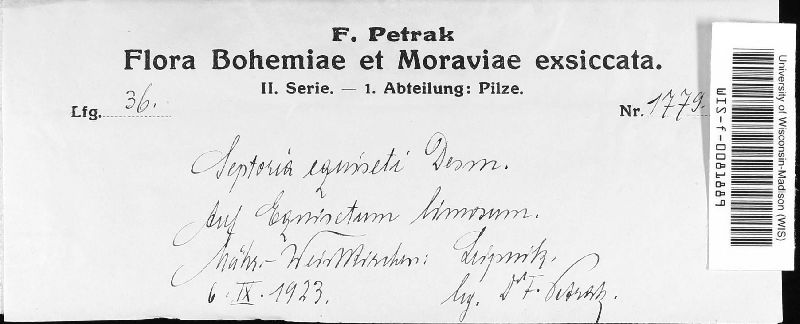 F. Petrak
Flora Bohemiae et Moraviae exsiccata.
II. Serie. — 1. Abteilung: Pilze.
Lfg. 36. Nr. 1779.
Septoria equiseti Desm.
Auf Equisetum limosum.
Mähr.-Weisskirchen: Leipnik.
6. IX. 1923. lg. Dr F. Petrak.
University of Wisconsin-Madison (WIS)
WIS-f-0081889